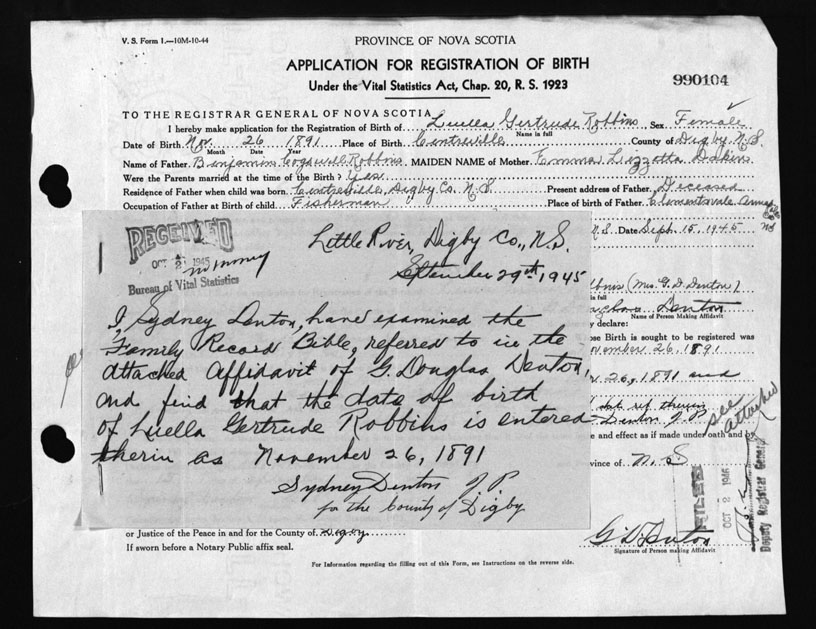 V. S. Form 1.—10M-10-44
PROVINCE OF NOVA SCOTIA
APPLICATION FOR REGISTRATION OF BIRTH
Under the Vital Statistics Act, Chap. 20, R. S. 1923
990104
TO THE REGISTRAR GENERAL OF NOVA SCOTIA
I hereby make application for the Registration of Birth of Luella Gertrude Robbins, Sex Female
Name in full
Date of Birth Nov. 26 1891 Place of Birth Centreville County of Digby N.S.
Month Date Year
Name of Father Benjamin Cogswell Robbins MAIDEN NAME of Mother Emma Lizzetta Dakin
Were the Parents married at the time of the birth? Yes
Residence of Father when child was born Centreville, Digby Co. N.S. Present address of Father Deceased
Occupation of Father at Birth of child Fisherman Place of birth of Father Clementsvale Annap
Co. NS
N.S. Date Sept. 15, 1945
RECEIVED
OCT 2 1945
no money
Bureau of Vital Statistics
Little River, Digby Co., N.S.
September 29th, 1945
I, Sydney Denton, have examined the
Family Record Bible, referred to in the
attached Affidavit of G. Douglas Denton,
and find that the date of birth
of Luella Gertrude Robbins is entered
therin as November 26, 1891
Sydney Denton J P
for the County of Digby
bbins (Mrs. G. D. Denton)
in full
Denton
Name of Person Making Affidavit
y declare:
ose Birth is sought to be registered was
ovember 26, 1891
26, 1891 and
therein
Denton J. P.
see attached
e and effect as if made under oath and by
vince of N. S.
FILED
OCT 2 1945
Deputy Registrar General
or Justice of the Peace in and for the County of Digby
If sworn before a Notary Public affix seal.
G. D. Denton
Signature of Person making Affidavit
For Information regarding the filling out of this Form, see Instructions on the reverse side.